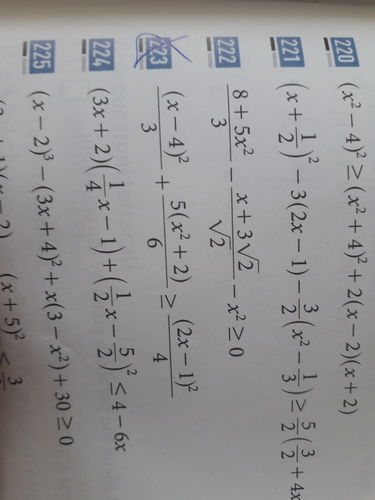 220 (x² − 4)² ≥ (x² + 4)² + 2(x − 2)(x + 2)
221 (x + 1/2)² − 3(2x − 1) − 3/2(x² − 1/3) ≥ 5/2(3/2 + 4x
222 (8 + 5x²)/3 − (x + 3√2)/√2 − x² ≥ 0
223 (x − 4)²/3 + 5(x² + 2)/6 ≥ (2x − 1)²/4
224 (3x + 2)(1/4 x − 1) + (1/2 x − 5/2)² ≤ 4 − 6x
225 (x − 2)³ − (3x + 4)² + x(3 − x²) + 30 ≥ 0
(x + 5)² ≤ 3